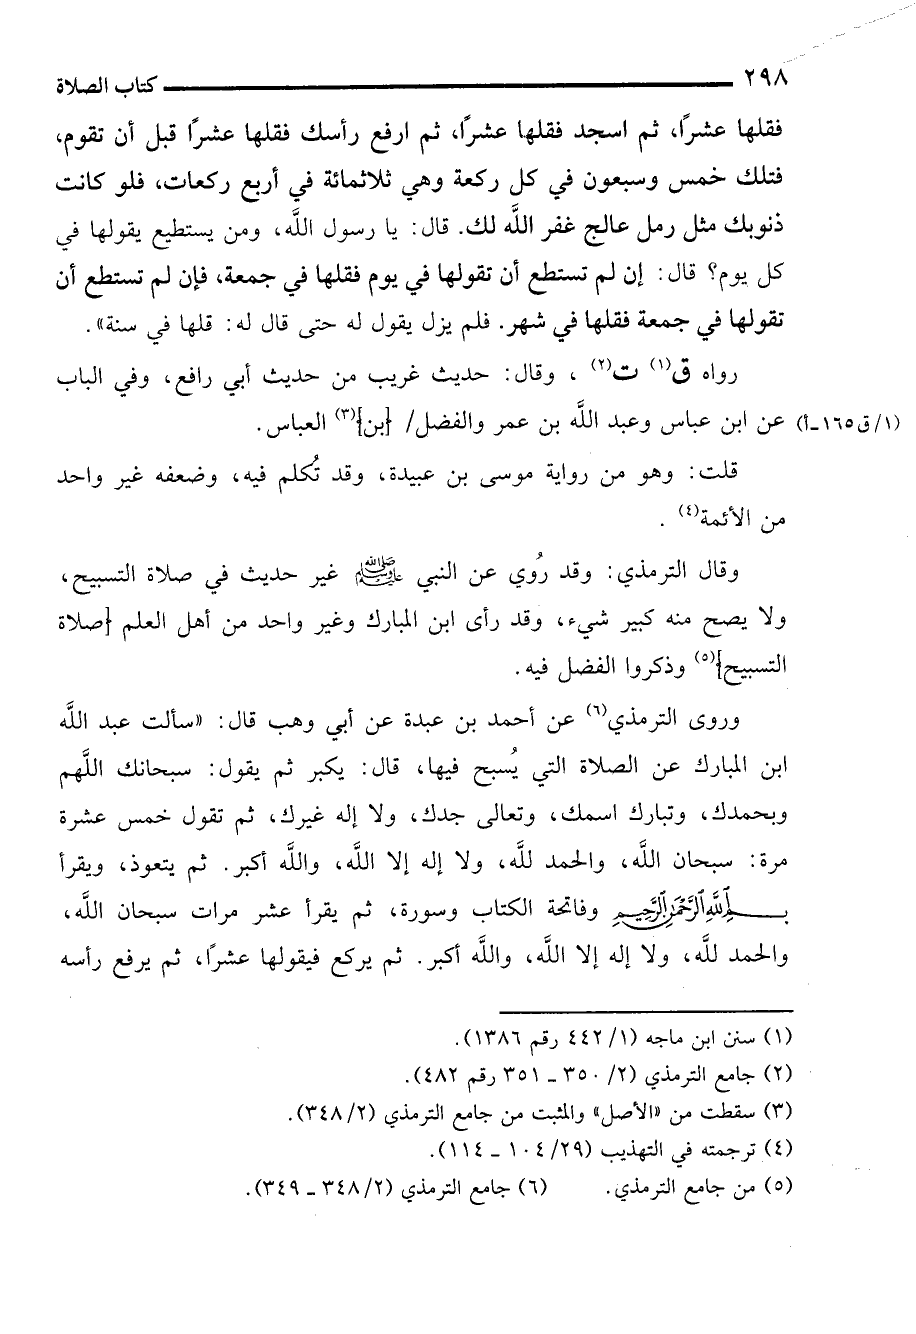 ٢٩٨ كتاب الصلاة
فقلها عشرًا، ثم اسجد فقلها عشرًا، ثم ارفع رأسك فقلها عشرًا قبل أن تقوم،
فتلك خمس وسبعون في كل ركعة وهي ثلاثمائة في أربع ركعات، فلو كانت
ذنوبك مثل رمل عالج غفر اللَّه لك. قال: يا رسول اللَّه، ومن يستطيع يقولها في
كل يوم؟ قال: إن لم تستطع أن تقولها في يوم فقلها في جمعة، فإن لم تستطع أن
تقولها في جمعة فقلها في شهر. فلم يزل يقول له حتى قال له: قلها في سنة».
رواه ق(١) ت(٢) ، وقال: حديث غريب من حديث أبي رافع، وفي الباب
(١/ق١٦٥-أ) عن ابن عباس وعبد اللَّه بن عمر والفضل/ {بن}(٣) العباس.
قلت: وهو من رواية موسى بن عبيدة، وقد تُكلم فيه، وضعفه غير واحد
من الأئمة(٤) .
وقال الترمذي: وقد رُوي عن النبي ﷺ غير حديث في صلاة التسبيح،
ولا يصح منه كبير شيء، وقد رأى ابن المبارك وغير واحد من أهل العلم {صلاة
التسبيح}(٥) وذكروا الفضل فيه.
وروى الترمذي(٦) عن أحمد بن عبدة عن أبي وهب قال: «سألت عبد اللَّه
ابن المبارك عن الصلاة التي يُسبح فيها، قال: يكبر ثم يقول: سبحانك اللَّهم
وبحمدك، وتبارك اسمك، وتعالى جدك، ولا إله غيرك، ثم تقول خمس عشرة
مرة: سبحان اللَّه، والحمد للَّه، ولا إله إلا اللَّه، واللَّه أكبر. ثم يتعوذ، ويقرأ
بسم الله الرحمن الرحيم وفاتحة الكتاب وسورة، ثم يقرأ عشر مرات سبحان اللَّه،
والحمد للَّه، ولا إله إلا اللَّه، واللَّه أكبر. ثم يركع فيقولها عشرًا، ثم يرفع رأسه
(١) سنن ابن ماجه (١/ ٤٤٢ رقم ١٣٨٦).
(٢) جامع الترمذي (٢/ ٣٥٠ - ٣٥١ رقم ٤٨٢).
(٣) سقطت من «الأصل» والمثبت من جامع الترمذي (٣٤٨/٢).
(٤) ترجمته في التهذيب (٢٩/ ١٠٤ - ١١٤).
(٥) من جامع الترمذي. (٦) جامع الترمذي (٣٤٨/٢ - ٣٤٩).